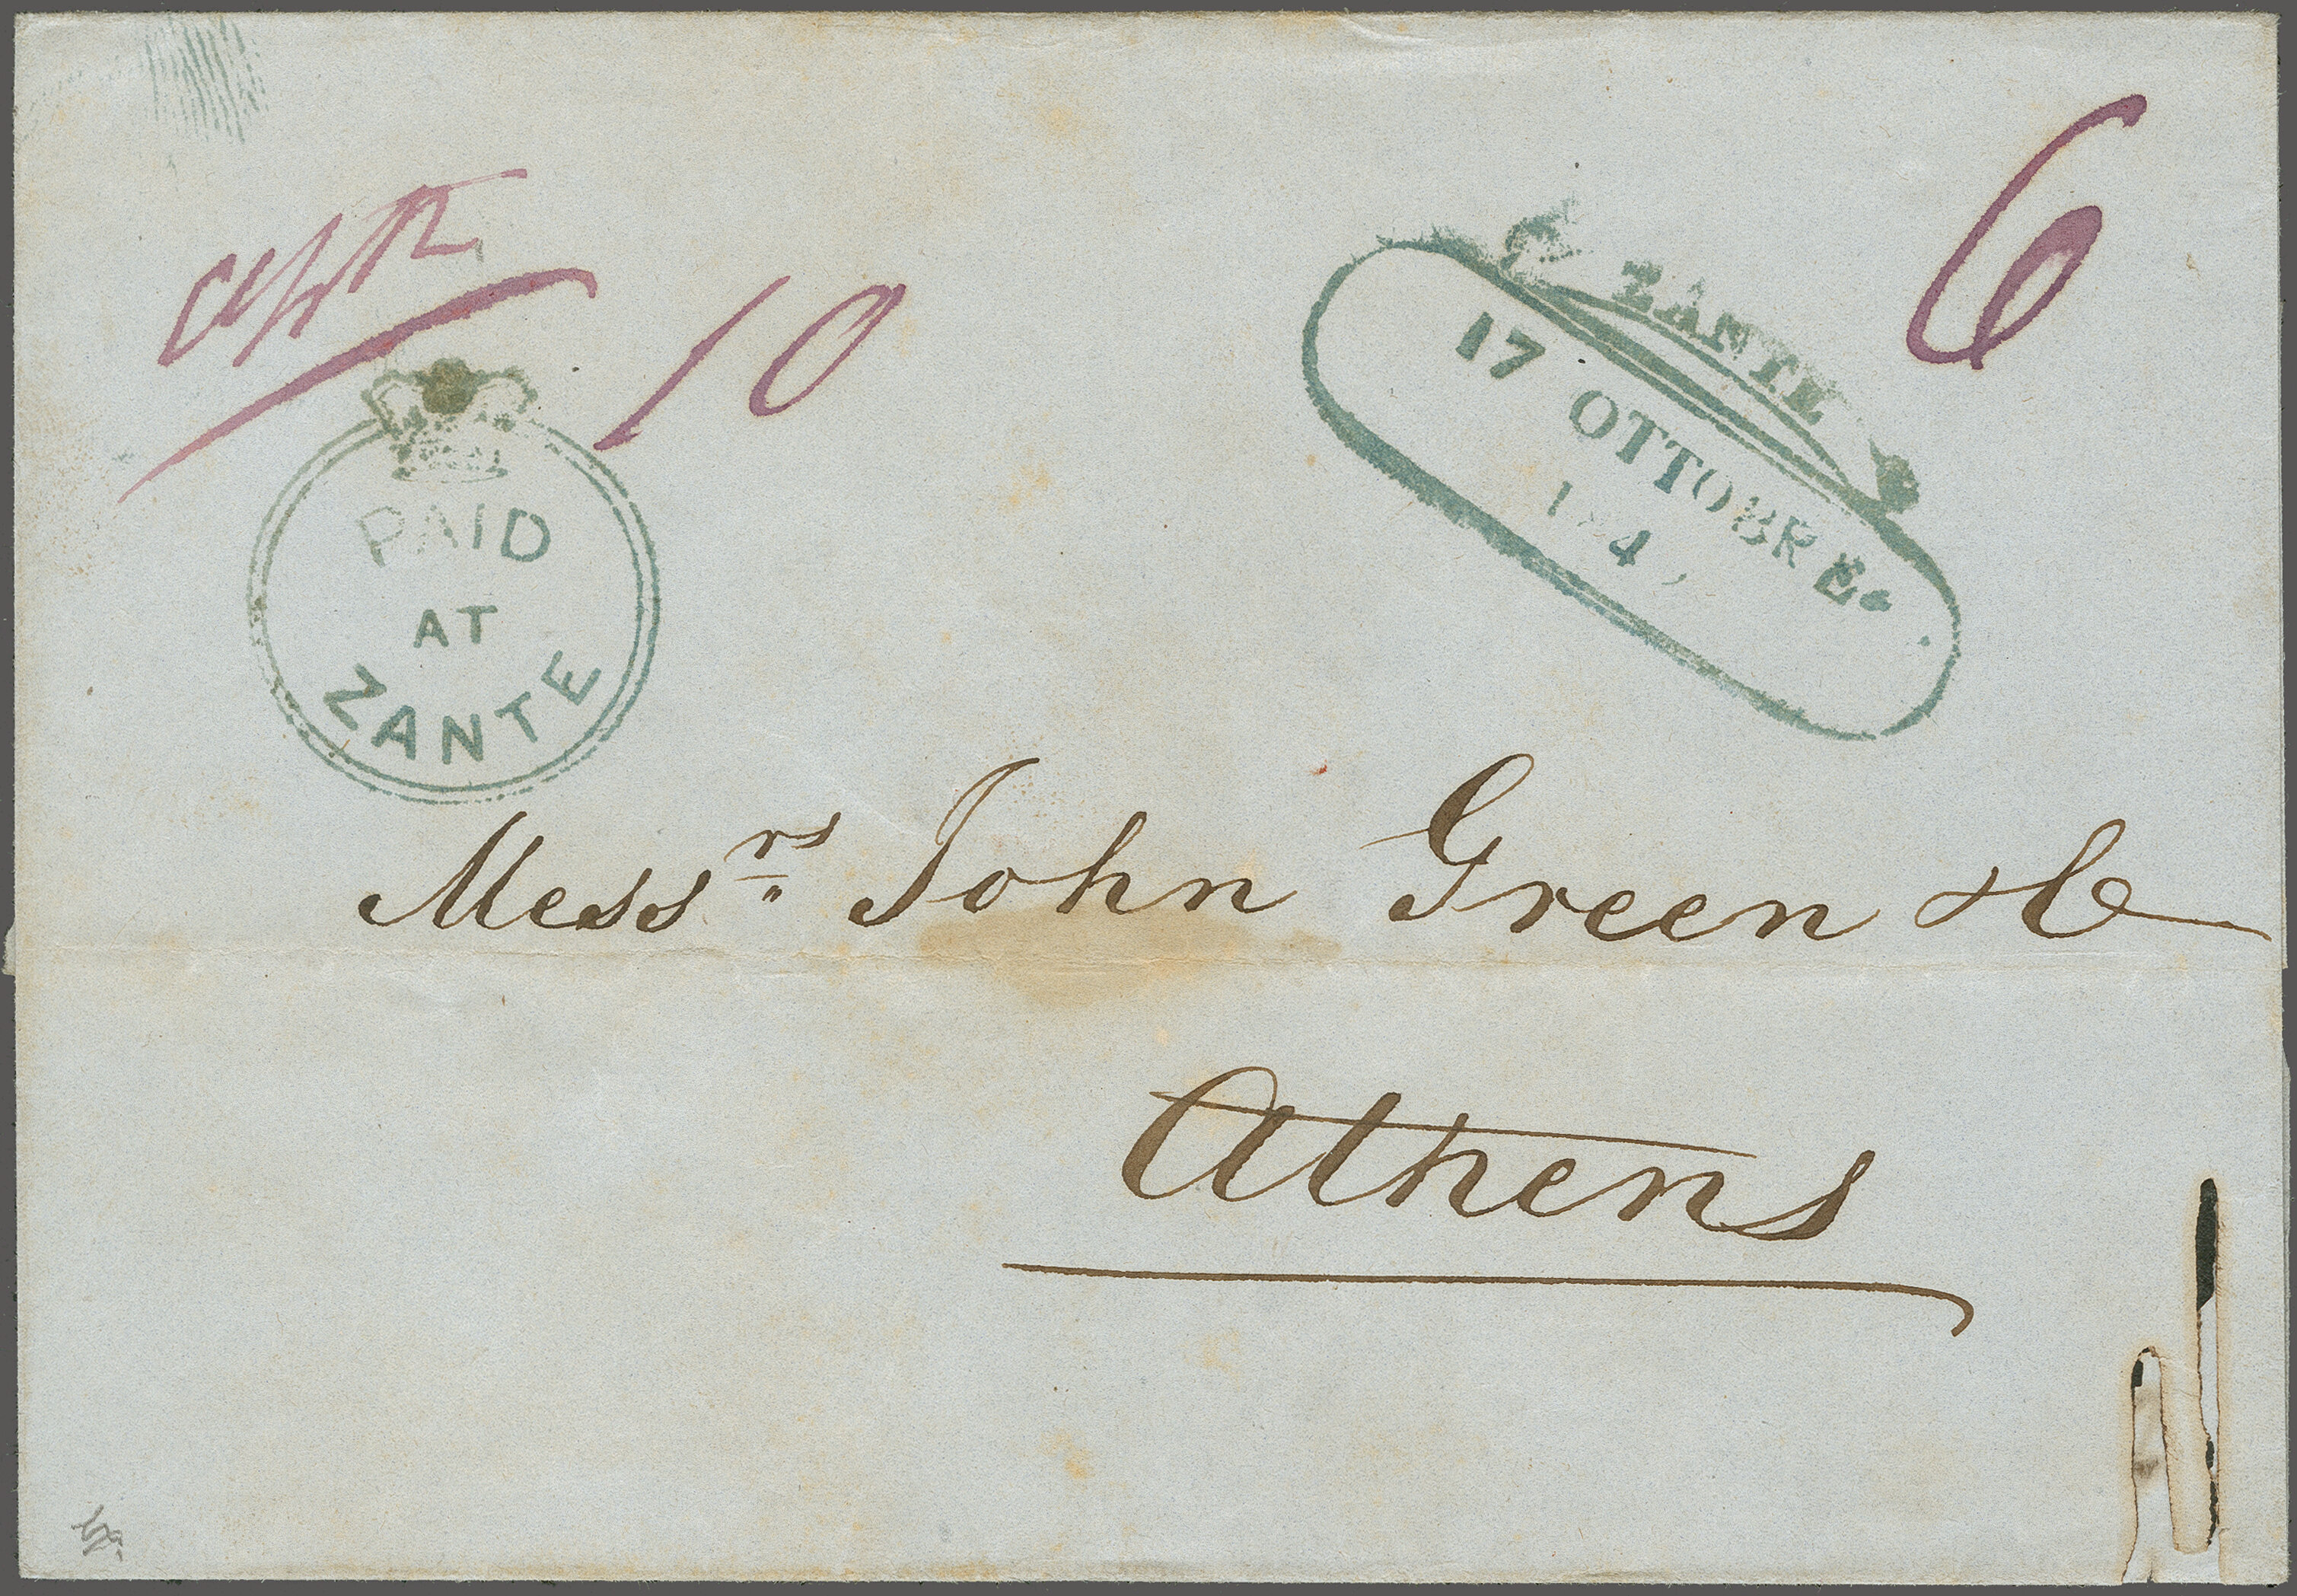 10
6
PAID
AT
ZANTE
ZANTE
17 OTTOBRE
Messrs John Green & Co
Athens